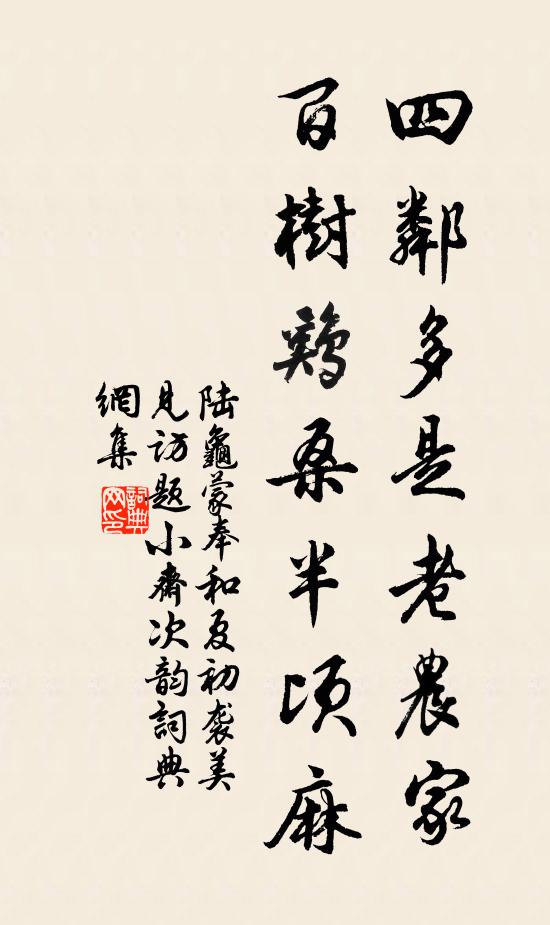 四鄰多是老農家
百樹雞桑半頃麻
陸龜蒙奉和夏初袭美
見訪題小齋次韵詞典
網集
詞典
网印